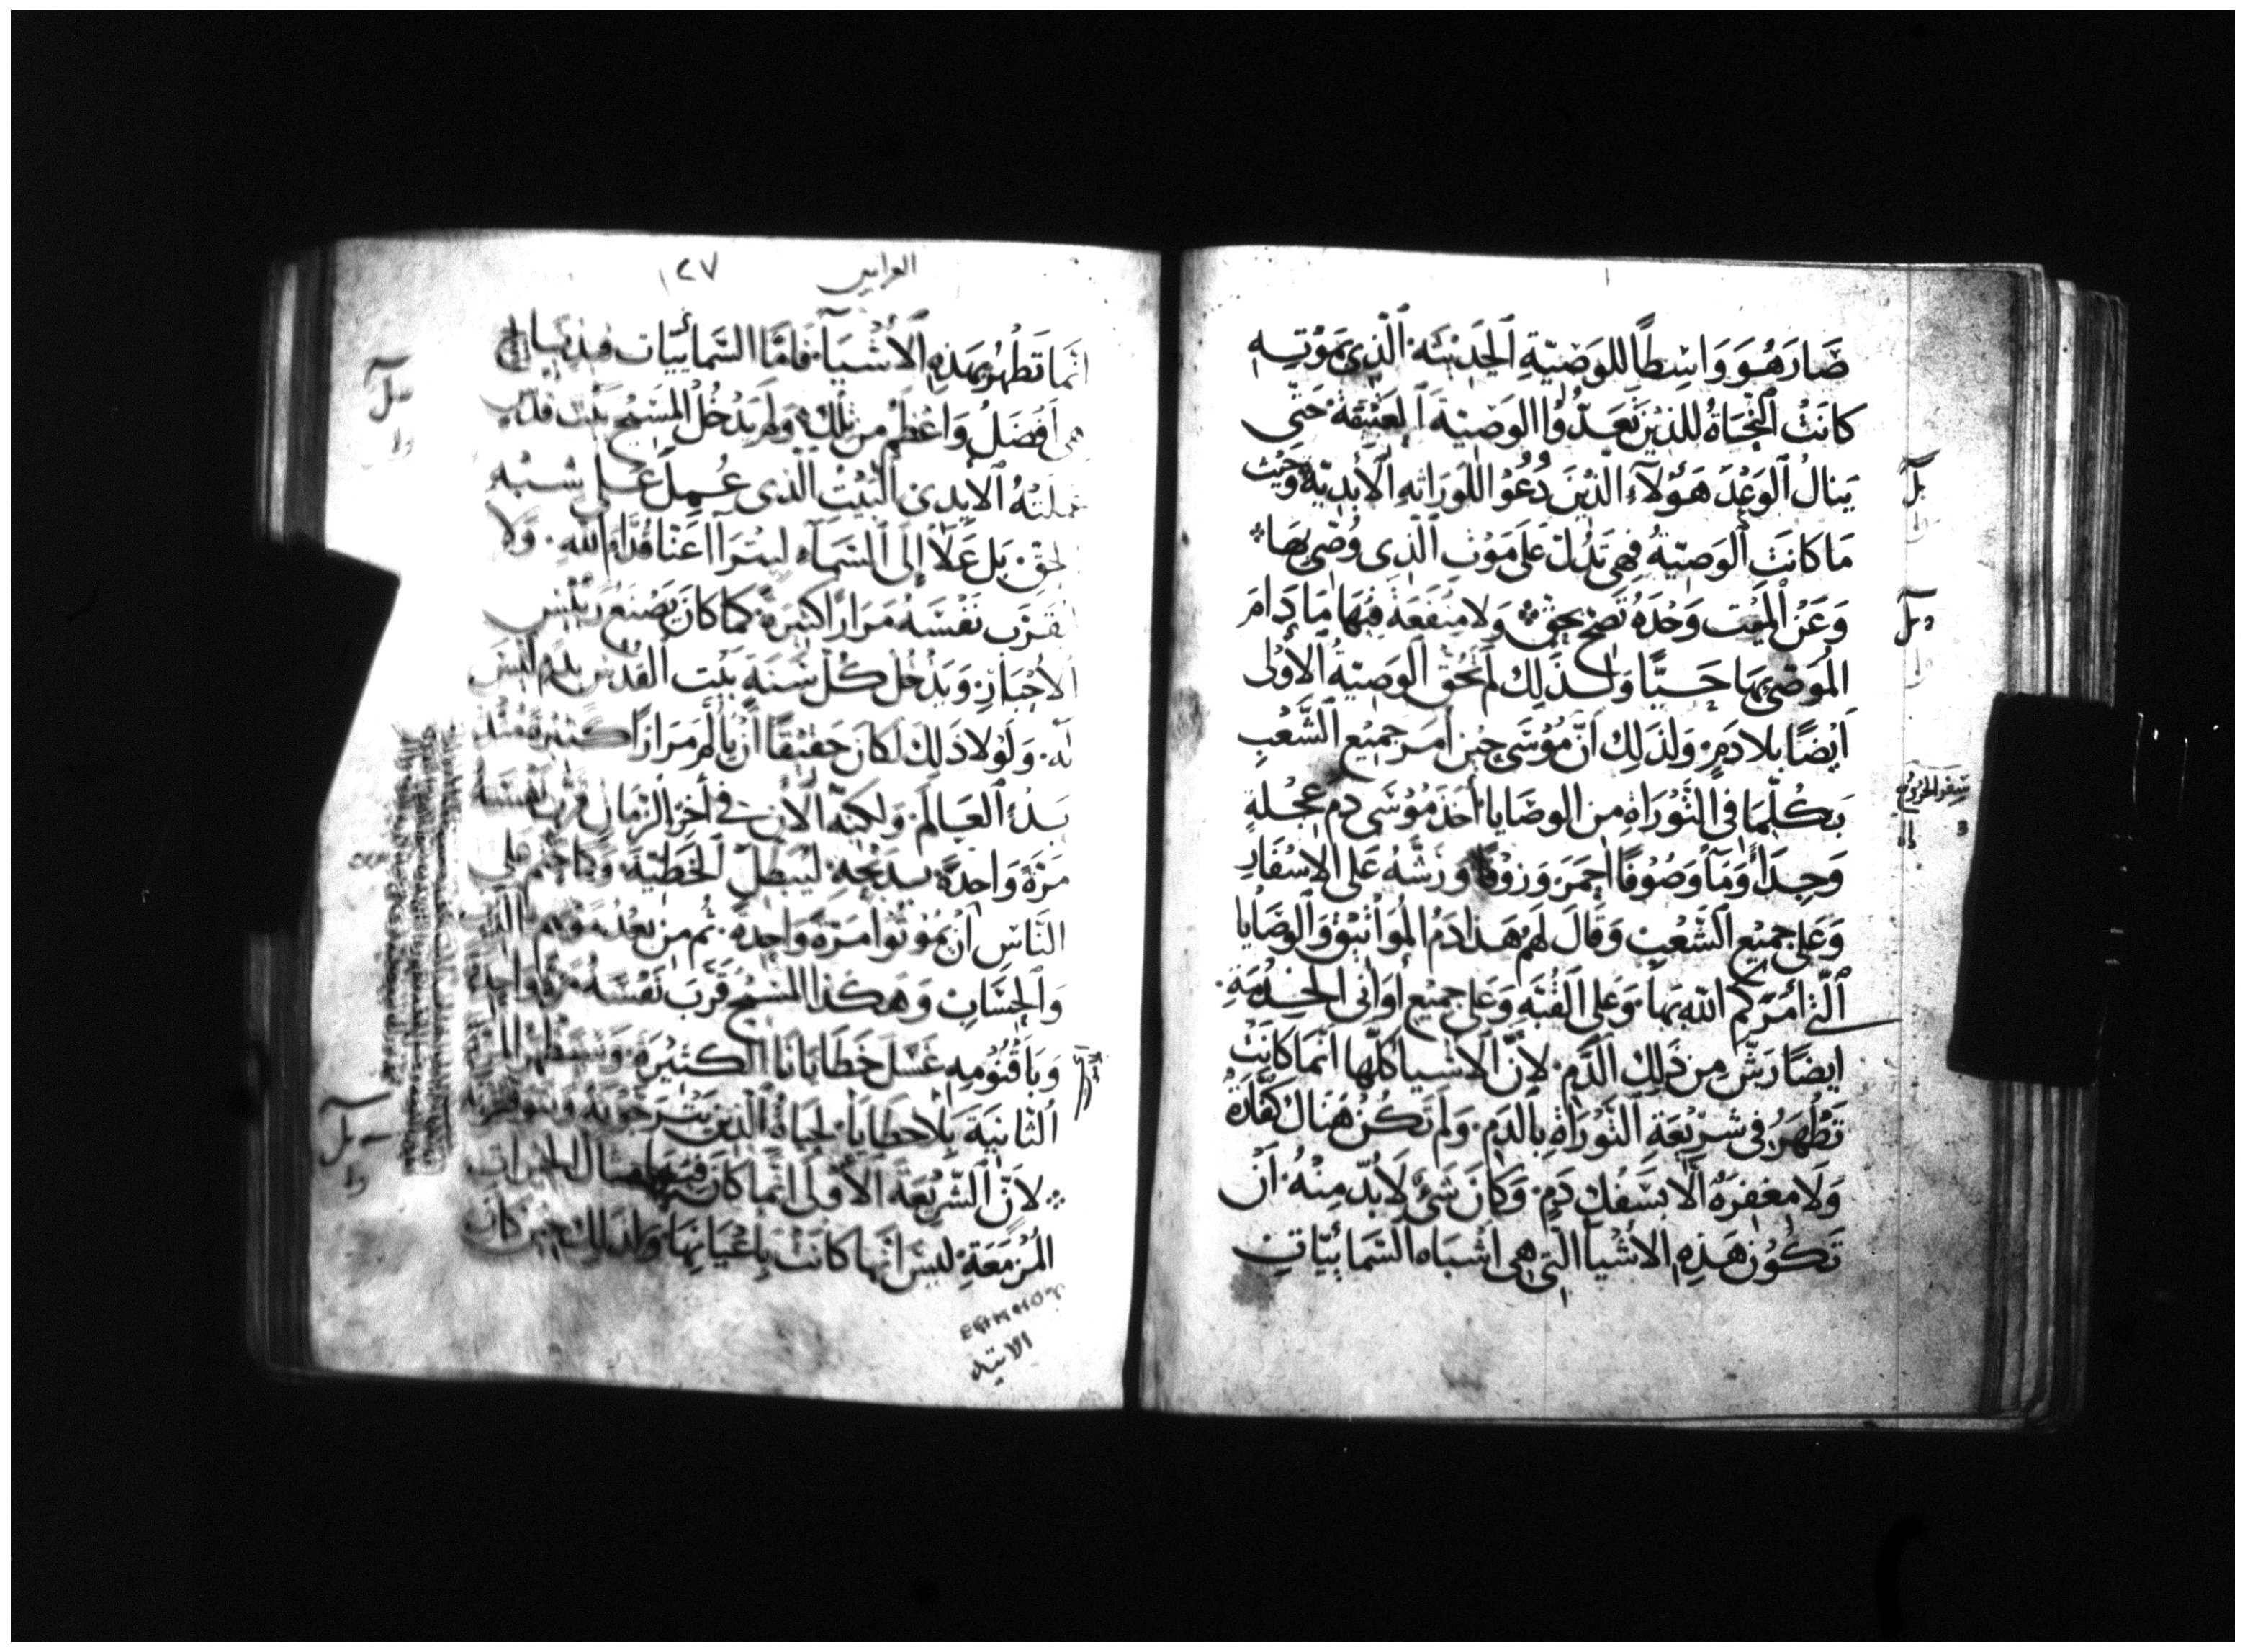 صَارَ هُوَ وَاسِطاً للوَصِيّةِ الحَدِيثَه الّذِى بمَوْتِهِ
كانَتْ النّجَاةُ للذِيْنَ تَعَدُّوْا الوَصِيّةَ العَتِيْقَةْ حَتّى
يَنالُ الوَعْدَ هَؤُلَآءِ الذّيْنَ دُعُوْا للوَرَاثهِ الأَبَدِيّةْ وَحَيْث
مَا كَانَت الوَصِيّةُ فِهىَ تَدُلّ عَلى مَوْت الّذِى وُصّىِ بهَا
وَعَنْ المَيّت وَحْدَهُ تَصِحّ بحَقّ وَلا مَنْفَعَةَ فِيهَا مَا دَامَ
المُوَصِّى بهَا حَيًّا وَلِذَلِكَ لَم تحُقّ الوَصِيّةُ الأُوْلَى
ايْضًا بلَا دَمٍ وَلذَلِكَ انّ مُوْسَى حِيْن أمَرَ جَمِيْع الشّعْبِ
بَكُلّمَا فى التّوْرَاةِ من الوَصَايا أخَذَ مُوْسَى دم عِجْلهٍ
وَجِدَاءً وَمَآ وَصُوْفًا احْمَرَ وَزُوْفًا وَرَشّهُ عَلى الاسْفَار
وَعَلى جَمِيْع الشّعْبِ وَقَالَ لهم هَذا دَمُ المَوَاثِيْقْ وَالوَصَايا
الّتى أمَرَكُم اللّه بهَا وَعَلى القُبّهِ وَعَلى جَمِيْع اوَانى الخِدْمَةِ
ايضًا رَشّ مِن ذَلِكَ الدّم لانّ الاشيا كلّها انّمَا كانَتْ
تَطْهُرُ فى شَرِيْعَةِ التّوْرَاةِ بالدّم وَلم تَكُنْ هُنَاكَ كَفّارَةْ
وَلَا مَغفِرَةُ الّا بسَفْكِ دَمٍ وَكَانَ شَئٌ لَابُدّ مِنْهُ أَنْ
تَكُوْن هَذِهِ الأشْيا الّتى هِى اشْبَاه السّمَائِيّات
بل
سِفْر الخرُوْج
العبرانيين ١٢٧
انّمَا تَطْهُرُ بهَذِهِ الأشْيَآ فامّا السّمائيّات فبذبَايح
هى أفْضَلُ وَاعْظم من تِلْكَ وَلَم يَدْخُل المَسِيْح بَيْت قدس
عملتهُ الأيْدِى البَيْتُ الّذِى عُمِلَ عَلى شبْه
الحَقّ بَل عَلَا إلَى السّمَآء ليُتَرَآا عَنّا قُدّامَ اللّه وَلَا
لُيقَرّب نَفْسَهُ مَرَارًا كثيرَةً كَما كَانَ يَصْنَع رَئيْس
الأحْبَار وَيَدْخُل كُلّ سَنَةٍ بَيْت القُدْس بدَمٍ ليسَ
لَه وَلَوْلا ذَلِكَ لَكَانَ حَقِيْقًا أنْ يَألَم مَرَارًا كَثيْرَةً مُنْذُ
بَدْءِ العَالَم وَلكِنّهُ الآن فى أخِر الزّمَان قرّب نَفْسَهُ
مَرّةً وَاحِدَةً بِذَبْحِهِ ليُبَطِل الخَطِيّة وَكَمَا حُتم عَلى
النّاس أنْ يمُوْتُوا مَرّةً وَاحِدَةً ثُم من بَعْدِ مَوْتِهم الدّيْن
وَالحِسَاب وَهَكَذا المَسِيْح قَرّبَ نَفْسَهُ مَرّةً وَاحِدَةً
وَبأقْنُوْمِهِ غَسَلَ خَطَايَانَا الكَثِيْرَة وَسَيَظْهَرُ المَرّةَ
الثَانِيَة بِلا خطَايَا لحَيَاةُ الّذِيْن يَرجُوْنَهُ
لانّ الشّرِيْعَةَ الأُوْلَى انّما كَانَ فِيْهَا مثال الخيرات
المُزْمَعَةِ ليسَ انّهَا كَانَتْ بأعْيَانِهَا وَلذَلِكَ حِيْن كَان
الاتيه